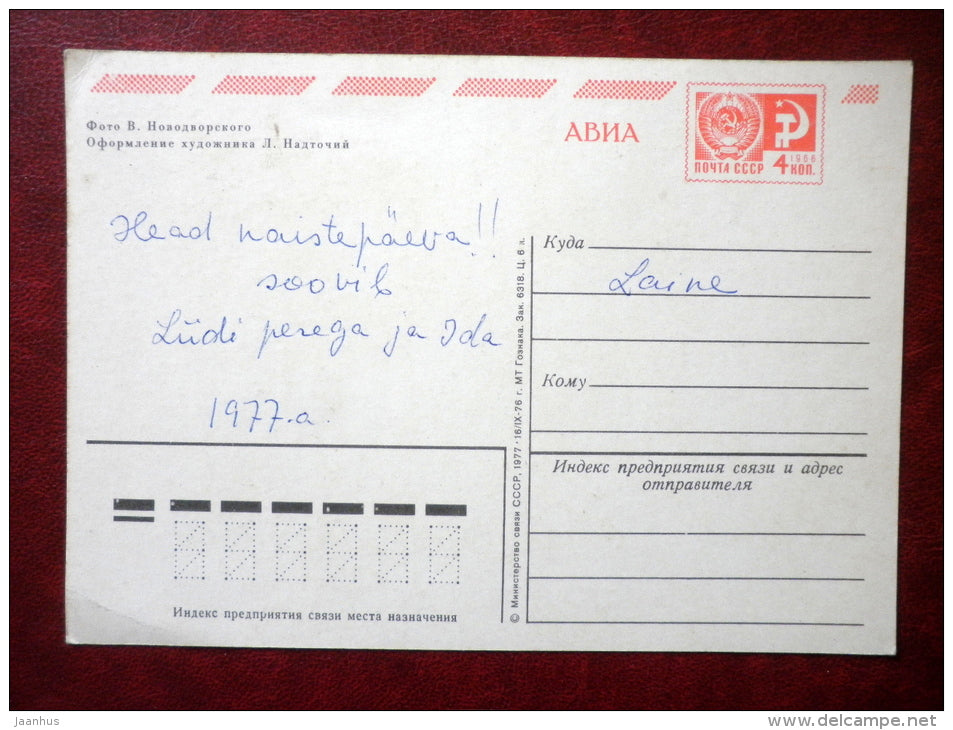 Фото В. Новодворского
Оформление художника Л. Надточий
АВИА
ПОЧТА СССР
1966
4 КОП.
Head naistepäeva!!
soovib
Lüdi perega ja Ida
1977.a.
Куда
Laine
Кому
Индекс предприятия связи и адрес
отправителя
Индекс предприятия связи места назначения
© Министерство связи СССР, 1977 · 16/IX-76 г. МТ Гознака. Зак. 6318. Ц. 6 к.
jaanhus
www.delcampe.net